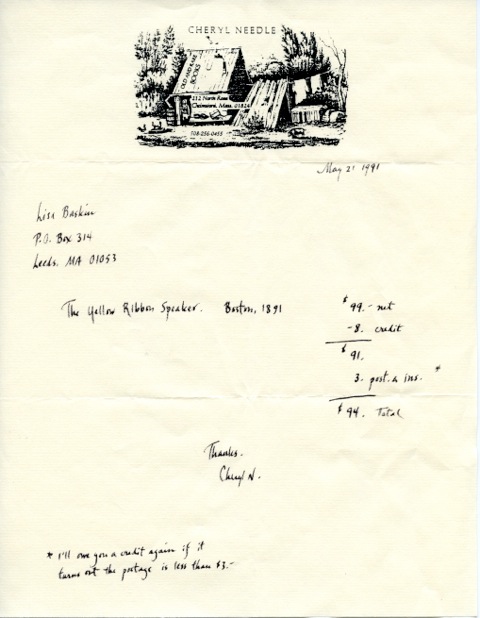 CHERYL NEEDLE
OLD AND RARE
BOOKS
212 North Road
Chelmsford, Mass. 01824
508-256-0455
May 21 1991
Lisa Baskin
P.O. Box 314
Leeds, MA 01053
The Yellow Ribbon Speaker. Boston, 1891 $99.- net
-8. credit
$91.
3. post. & ins. *
$94. Total
Thanks.
Cheryl N.
* I'll owe you a credit again if it
turns out the postage is less than $3.-